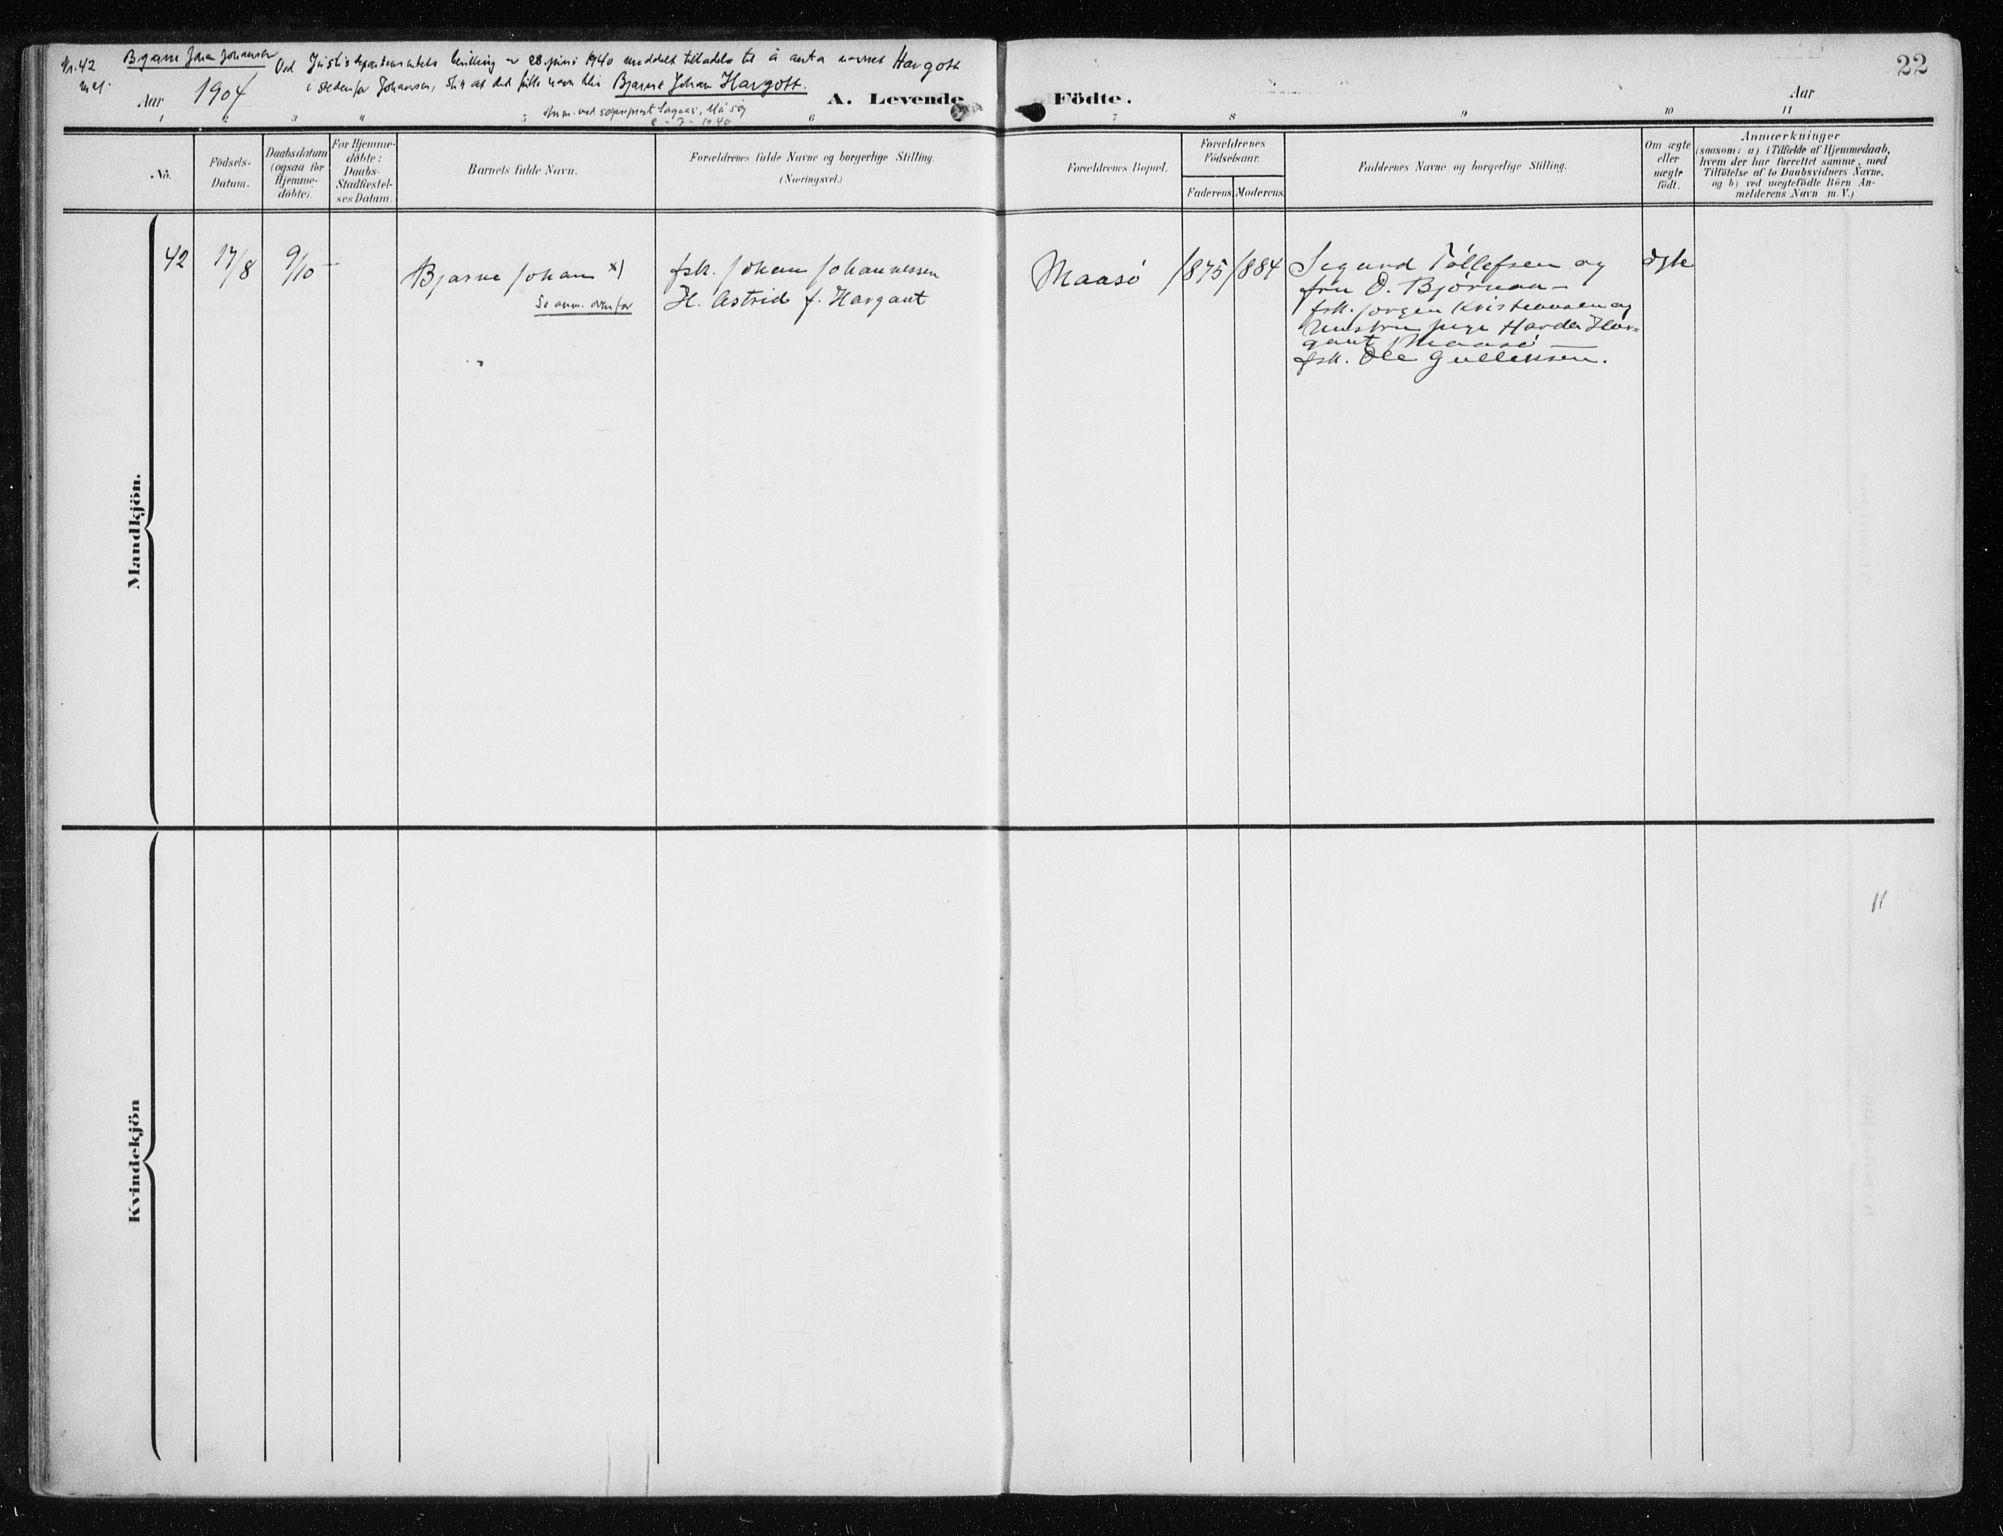 Nr. 42 Bjarne Johan Johansen Ved Justisdepartementets bevilling av 28 juni 1940 meddelt tilladelse til å anta navnet Hargott
i stedenfor Johansen, slik at det fulle navn blir Bjarne Johan Hargott.
Anm. ved sogneprest Måsøy
8-7-1940
22
Aar 1904 A. Levende Födte. Aar
1 2 3 4 5 6 7 8 9 10 11
No.
Födsels-
Datum.
Daabsdatum
(ogsaa for
Hjemme-
döbte).
For Hjemme-
döbte:
Daabs-
Stadfæstel-
ses Datum.
Barnets fulde Navn.
Forældrenes fulde Navne og borgerlige Stilling.
(Næringsvei.)
Forældrenes Bopæl.
Forældrenes
Födselsaar.
Faderens. Moderens.
Faddernes Navne og borgerlige Stilling.
Om ægte
eller
uægte
födt.
Anmærkninger
(saasom: a) i Tilfælde af Hjemmedaab,
hvem der har forrettet samme, med
Tilföielse af to Daabsvidners Navne.
og b) ved uægtefödte Börn An-
melderens Navn m. V.)
Mandkjön.
42 17/8 9/10 — Bjarne Johan x)
Se anm. ovenfor
fsk. Johan Johannessen
H. Astrid f. Hargaut
Maasö 1875 1884
Sigurd Tøllefsen og
fru O. Bjørnan —
fsk. Jørgen Kristiansen og
Hustru pige Harda Har-
gaut, Maasö —
fsk. Ole Gulliksen.
ægte
Kvindekjön